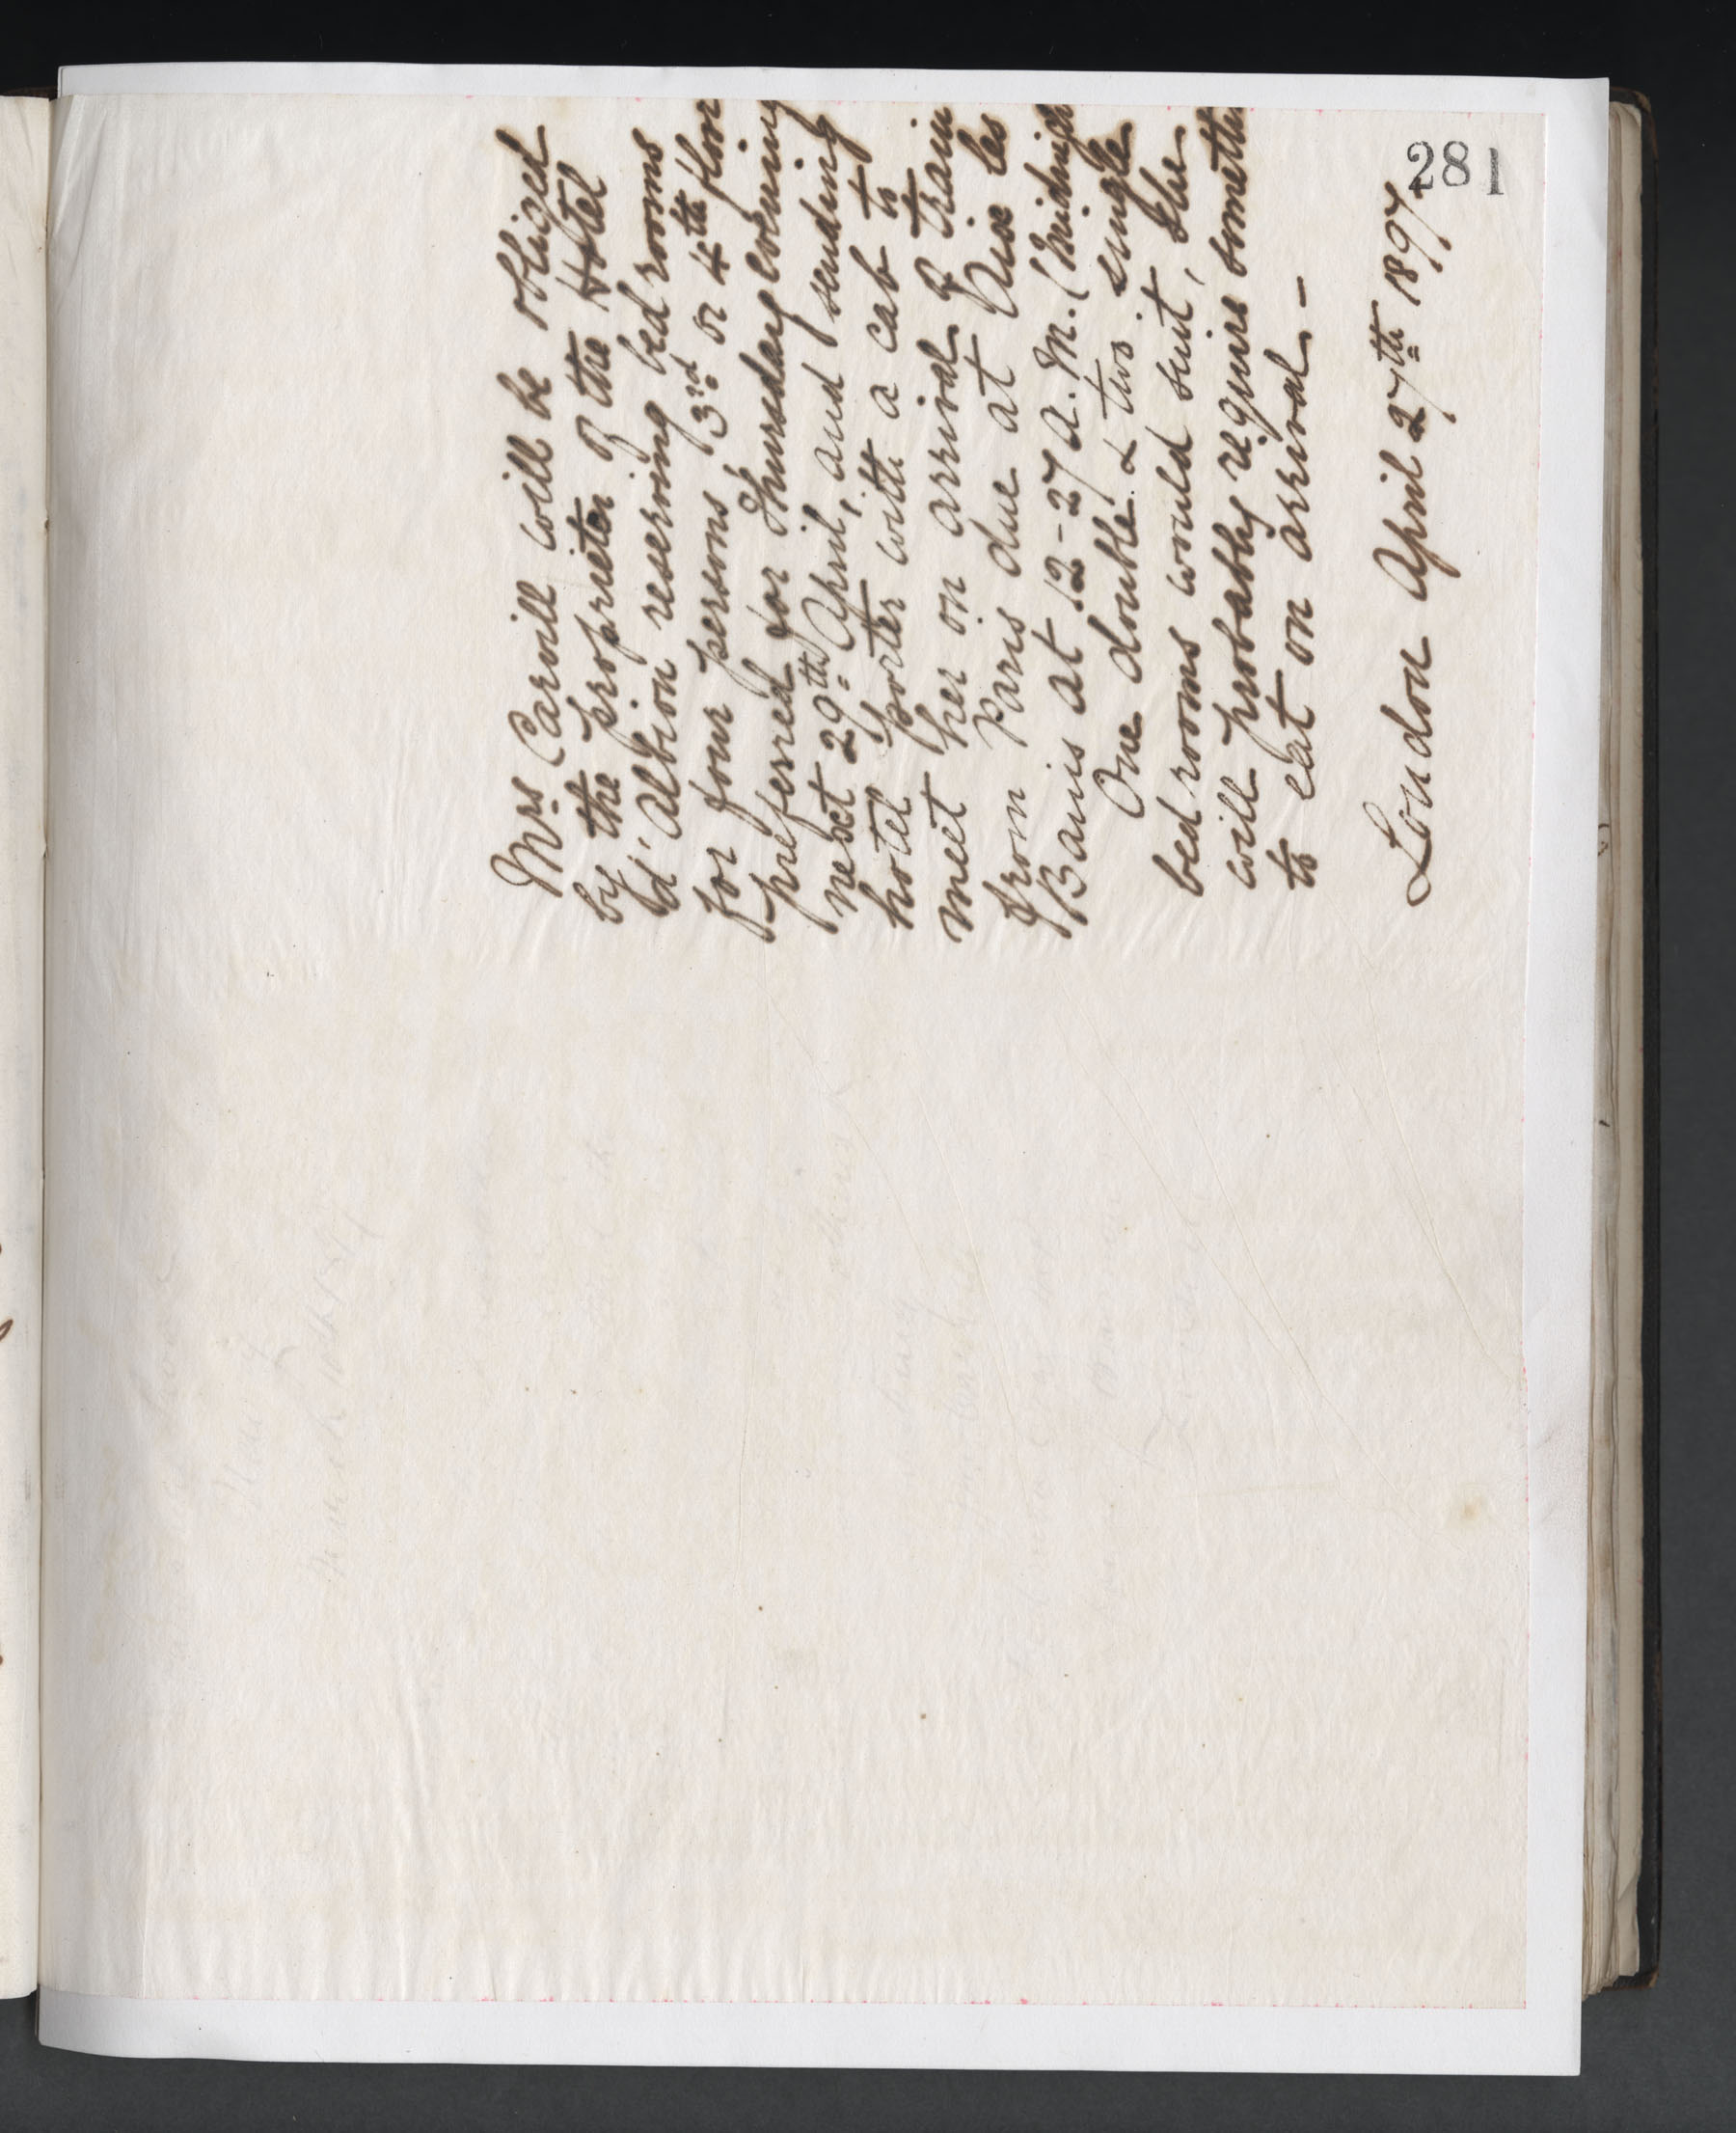 281
Mrs Carvill will be obliged
by the proprietor of the Hotel
d'Albion reserving bed rooms
for four persons, 3rd or 4th floor
preferred for Thursday evening
next 29th April, and sending
hotel porter with a cab to
meet her on arrival of train
from Paris due at Aix les
Bains at 12-27 A.M. (Midnigh
One double & two single
bed rooms would suit, She
will probably require somethin
to eat on arrival -
London April 27th 1897.